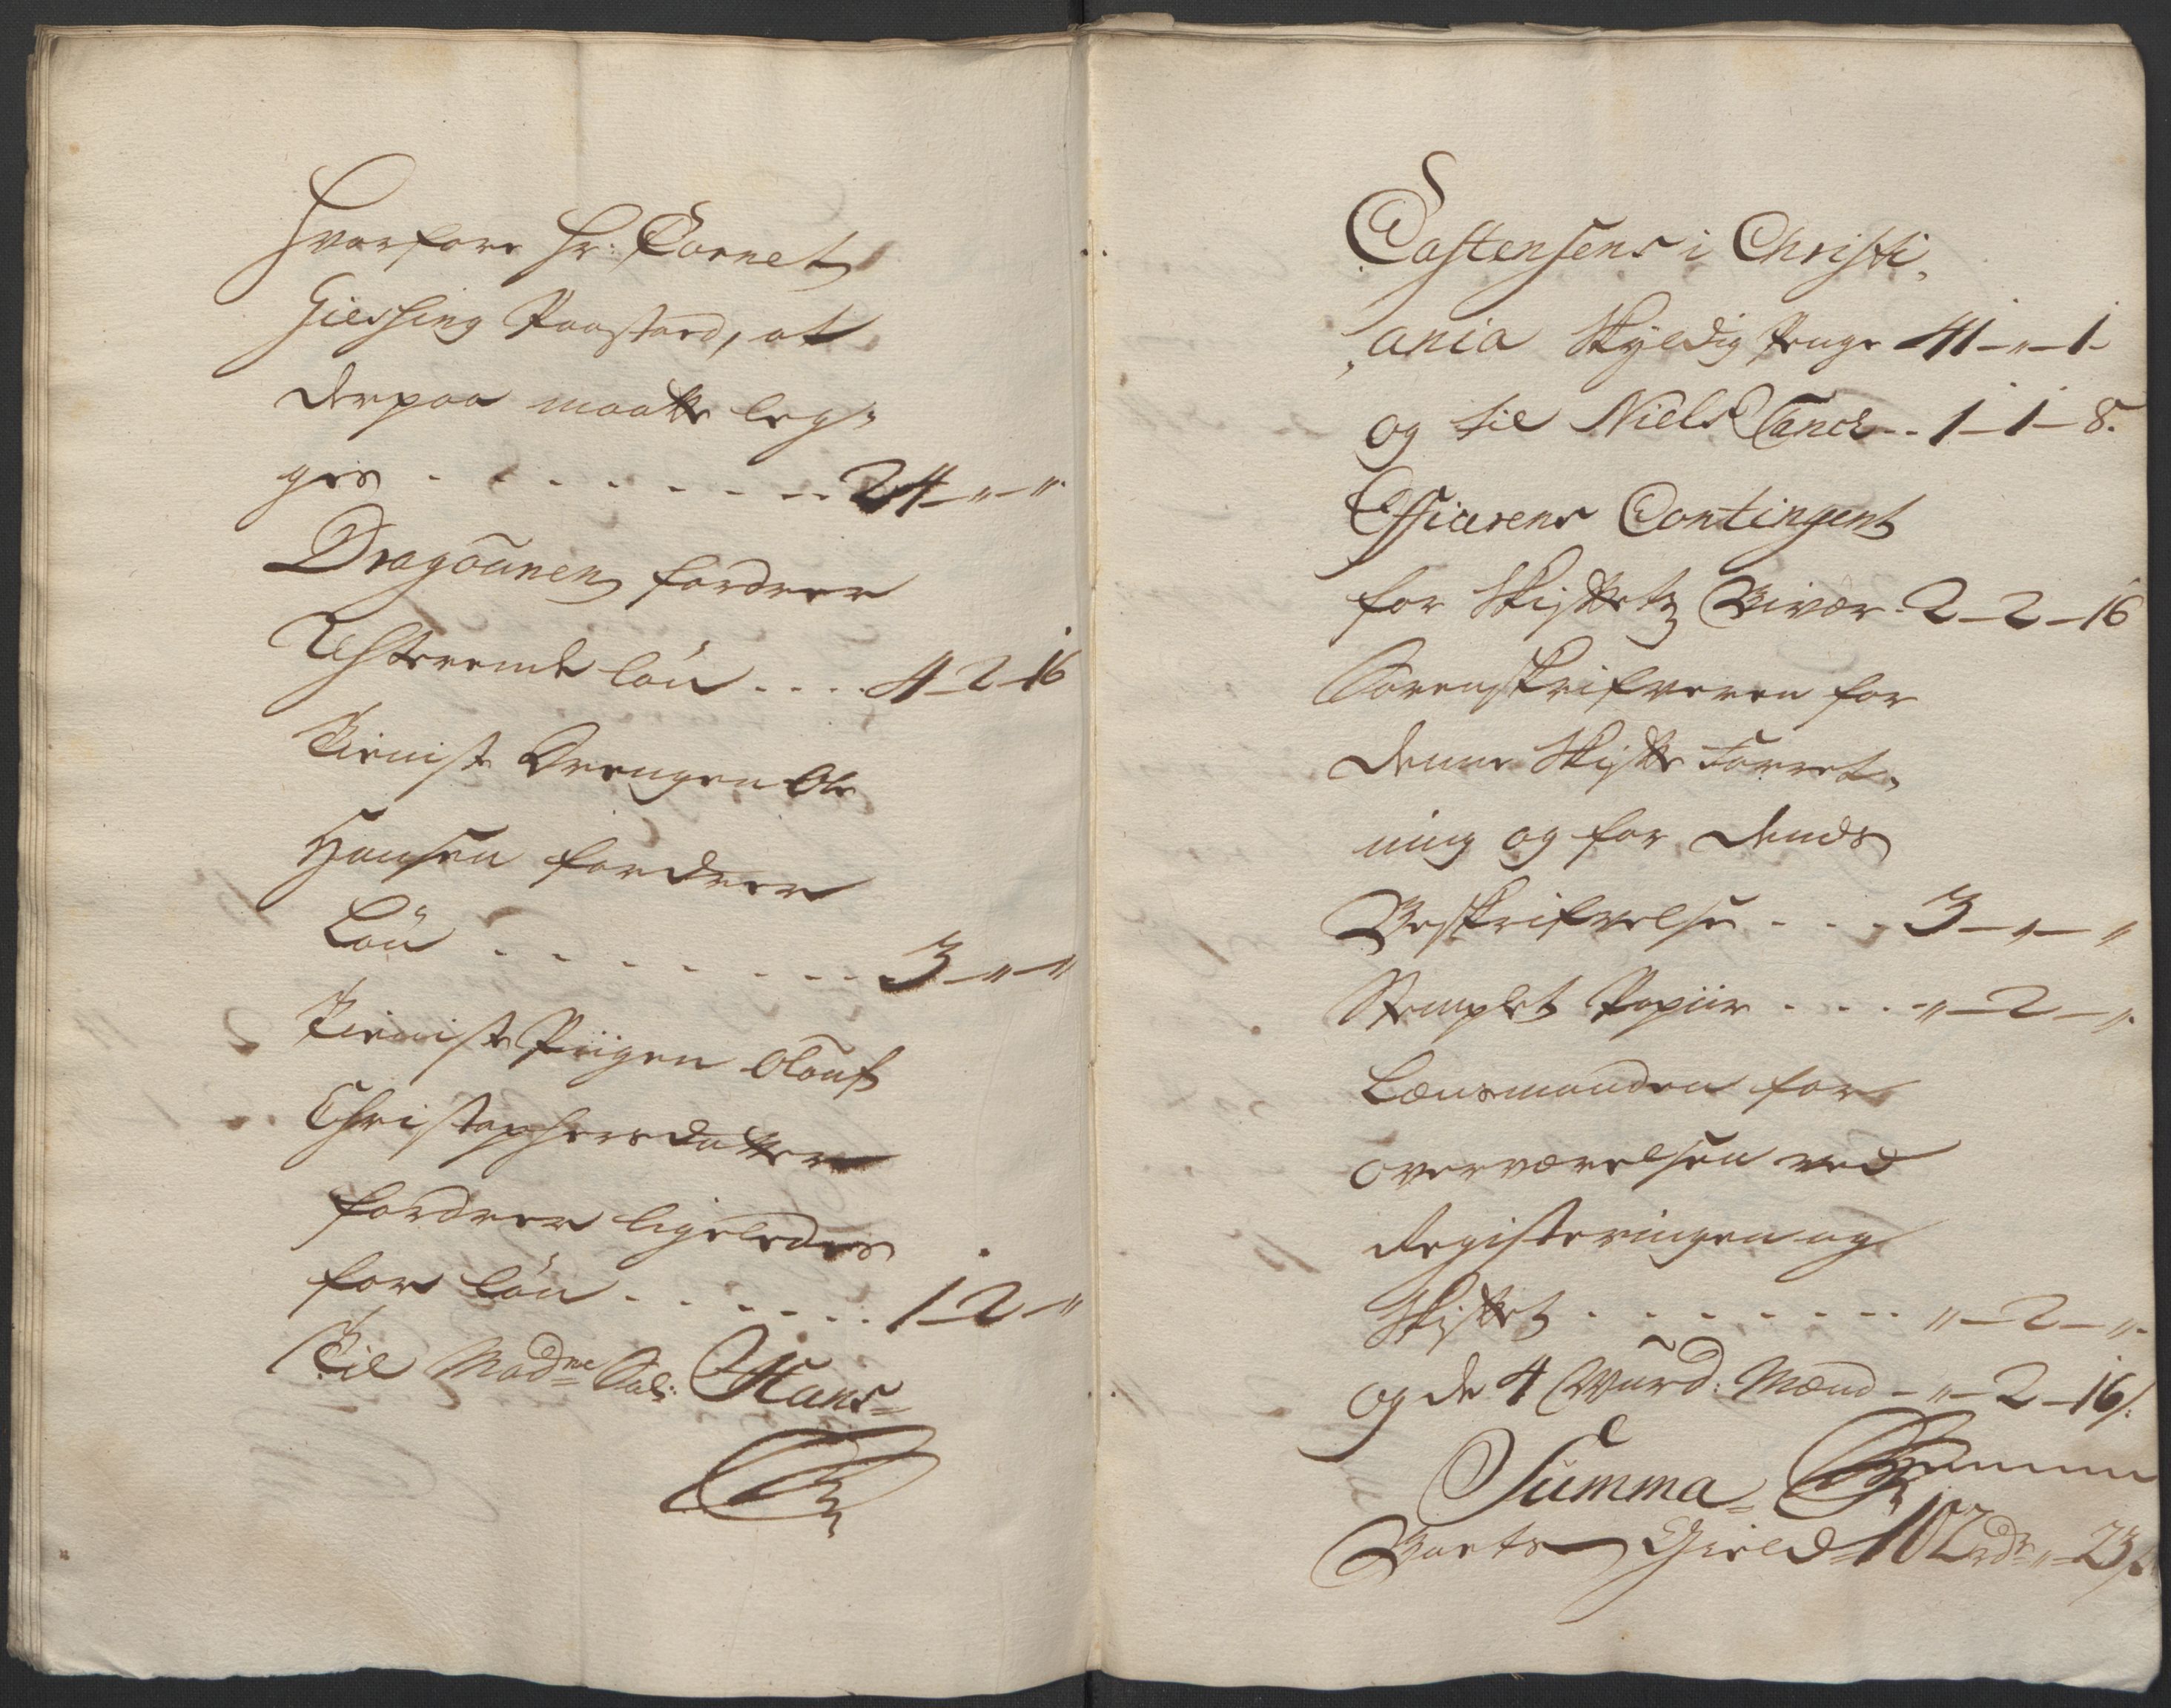 Hvorfore Hr: Cornet
Giessing Paastaard, at
derpaa maatte leg¬
ges - - - - - - - 24 - " - "
Dragounen fordrer
Resterende løn - - - - 4 - 2 - 16
Tieniste Drengen Ole
Hansen fordrer
Løn - - - - - - - 3 - " - "
Tieniste Piigen Olouf
Christophersdatter
fordrer ligeledes
for løn - - - - - - 1 - 2 - "
Til Madme Sal: Hans
Carstensens i Christi¬
ania skyldig Penge 41 - " - 1
og til Niels Tanck - - 1 - 1 - 8.
Officerens Contingent
for Skiftets Bivær - 2 - 2 - 16
Sorenskrifveren for
denne Skifte Forret¬
ning og for dends
Beskrifvelse - - - 3 - " - "
Stemplet Papiir - - - - " - 2 - "
Lænsmanden for
overværelsen ved
Registeringen og
Skiftet - - - - - - - " - 2 - "
og de 4 Wurd: Mænd - " - 2 - 16/:
Summa
Boets Gield 102 rdr " - 23/: